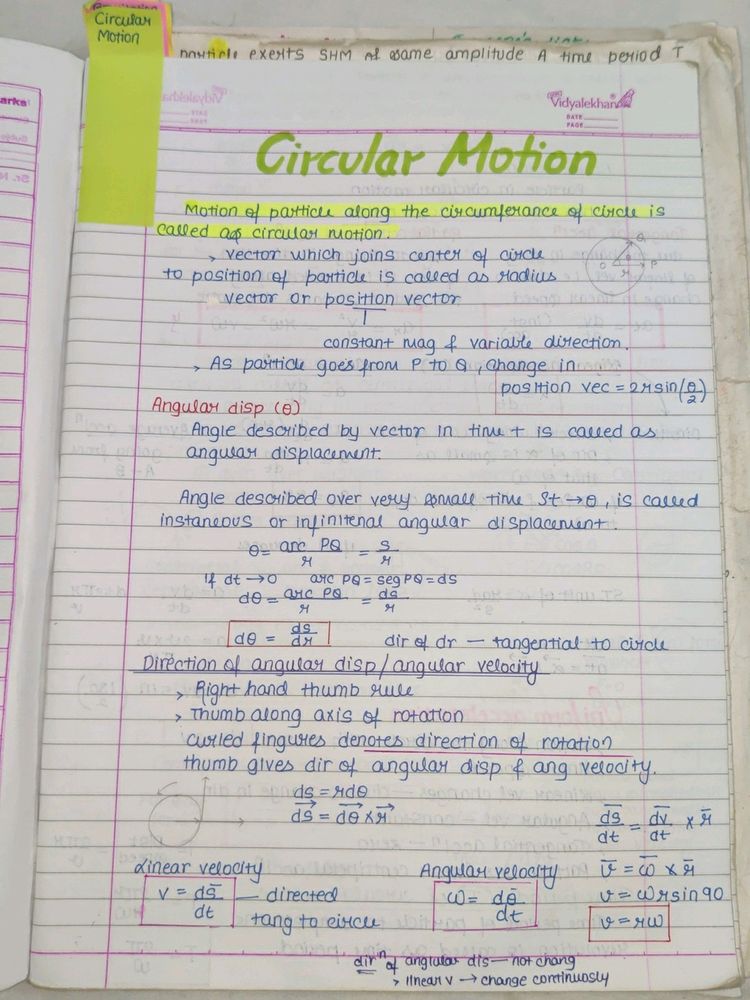 Circular
Motion
particle exerts SHM of same amplitude A time period T
Vidyalekhan
DATE
PAGE
Circular Motion
Motion of particle along the circumferance of circle is
called as circular motion.
> vector which joins center of circle
to position of particle is called as radius
vector or position vector
constant mag & variable direction.
> As particle goes from P to Q, change in
position vec = 2r sin(θ/2)
Angular disp (θ)
Angle described by vector in time t is called as
angular displacement.
Angle described over very small time St → θ, is called
instaneous or infinitenal angular displacement.
θ = arc PQ / r = s / r
If dt → 0 arc PQ = seg PQ = ds
dθ = arc PQ / r = ds / r
dθ = ds / dr dir of dr — tangential to circle
Direction of angular disp/angular velocity
> Right hand thumb rule
> Thumb along axis of rotation
curled fingures denotes direction of rotation
thumb gives dir of angular disp & ang velocity.
ds = rdθ
d͞s = d͞θ × r͞
d͞s / dt = d͞v / dt × r̄
Linear velocity
v = ds̄ / dt — directed
tang to circle
Angular velocity
ω = dθ̄ / dt
v̄ = ω̄ × r̄
v = ωr sin 90
v = rω
dirⁿ of anglular dis — not chang
> linear v → change continuosly
O
Q
P
r
arks